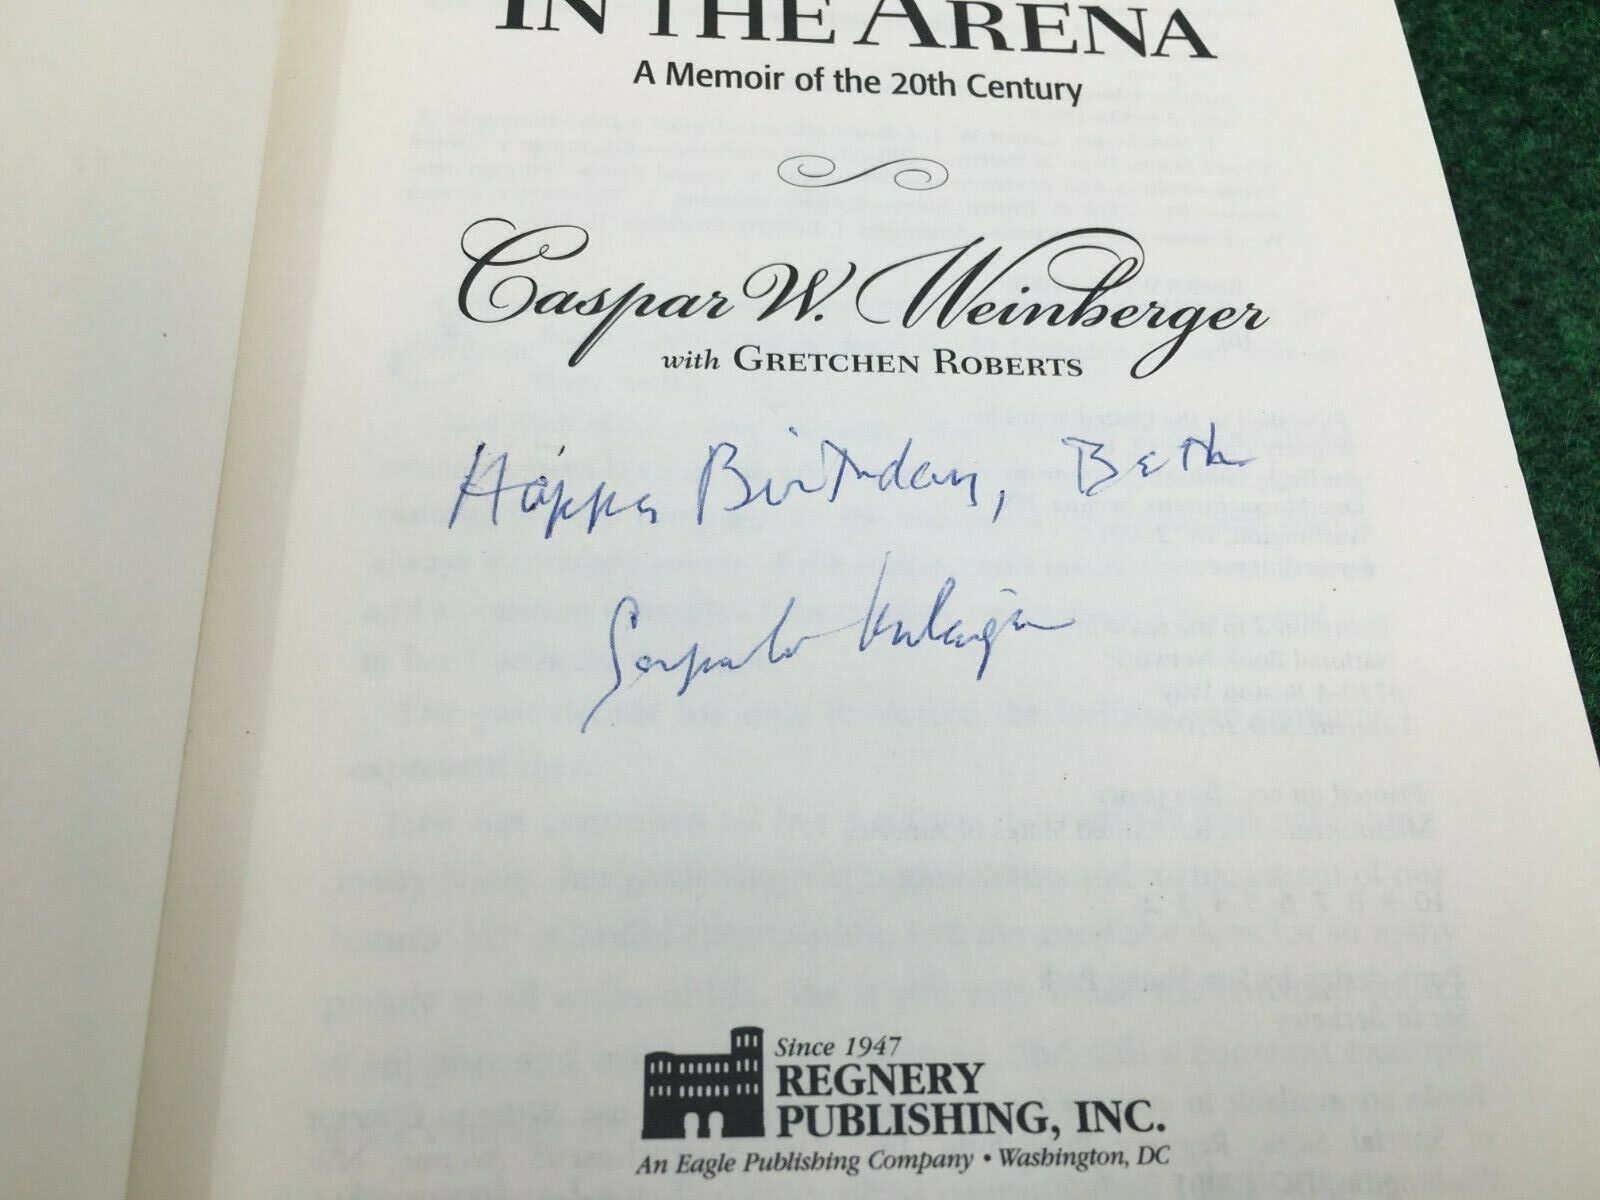 IN THE ARENA
A Memoir of the 20th Century
Caspar W. Weinberger
with GRETCHEN ROBERTS
Happy Birthday, Beth
Since 1947
REGNERY
PUBLISHING, INC.
An Eagle Publishing Company • Washington, DC